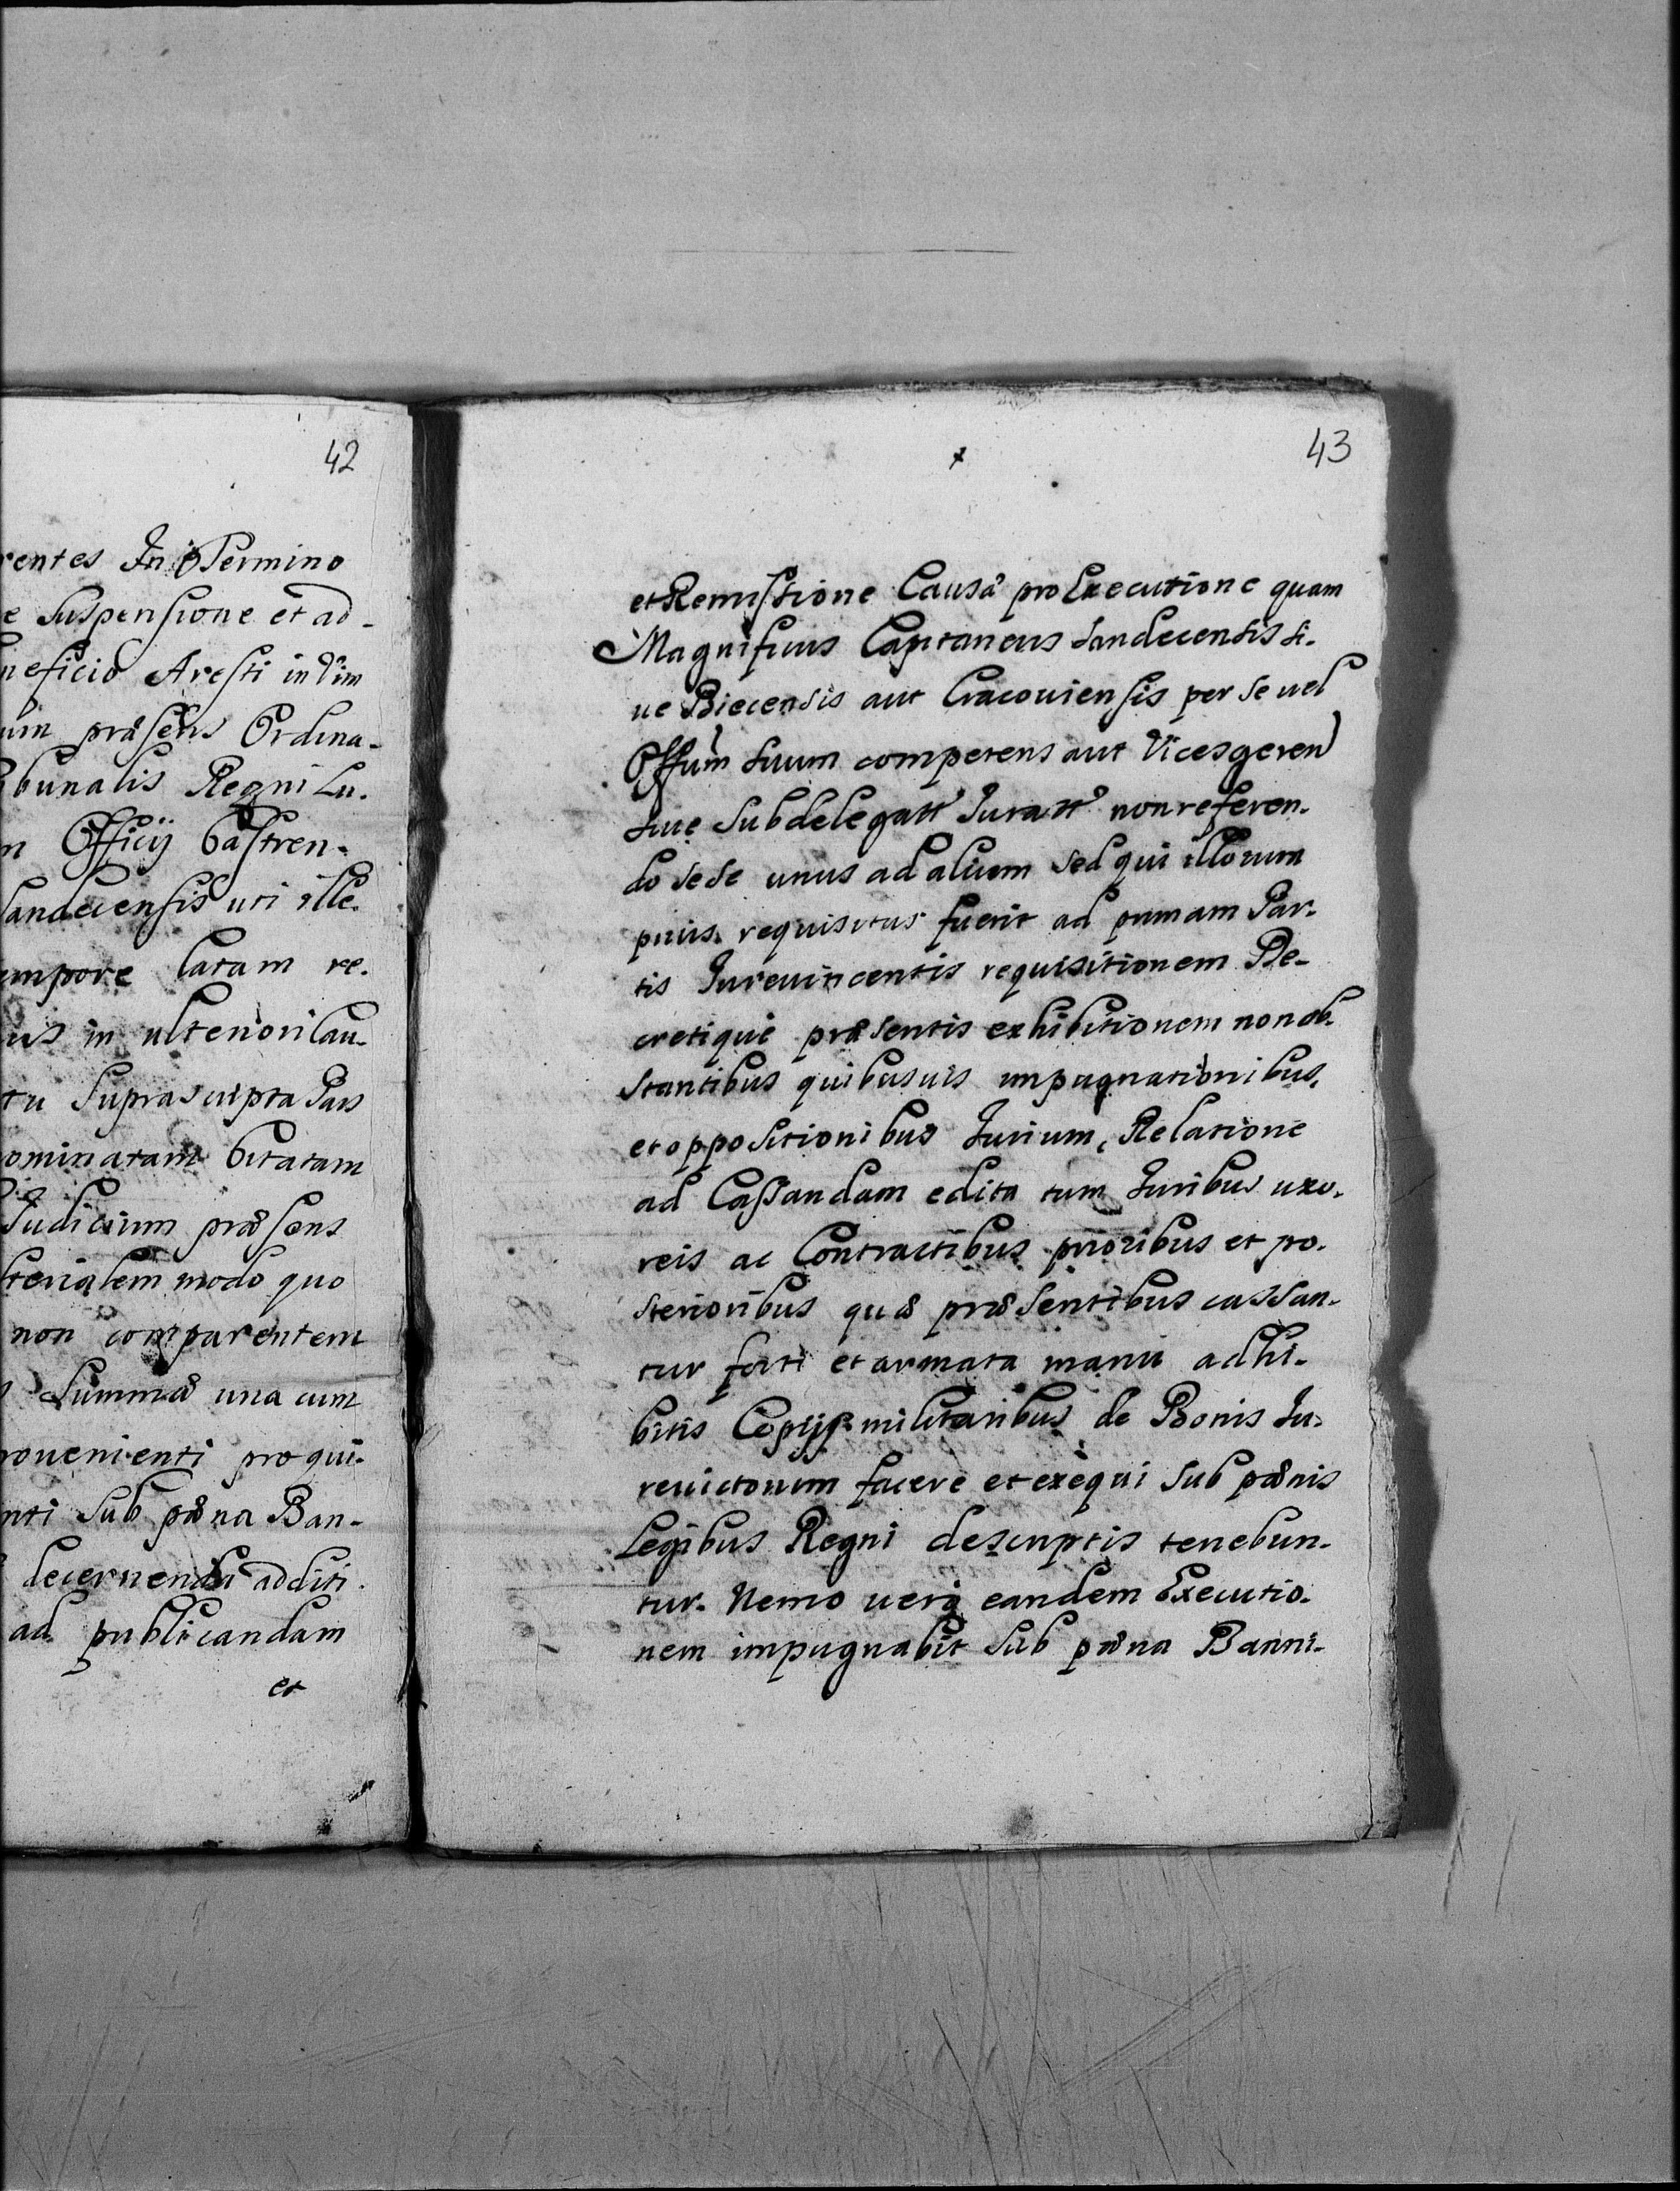 42
rentes In Termino
e Suspensione et ad-
neficio Aresti in Vim
um præsens Ordina-
bunalis Regni Lu-
n Officij Castren-
Sandecensis uti ille-
empore latam re-
us in ulteriori Cau-
tu Suprascripta Pars
ominatam Citatam
Judicium præsens
terialem modo quo
non comparentem
Summæ una cum
rovenienti pro qui-
nti Sub pæna Ban-
decernenda additi-
ad publicandam
et
43
et Remissione Causæ pro Executione quam
Magnificus Capitaneus Sandecensis Si-
ue Biecensis aut Cracouiensis per Se uel
Offum Suum competens aut Vicesgeren
Siue Subdelegatt Juratt non referen-
do Sese unus ad alium Sed qui illorum
prius requisitus fuerit ad primam Par-
tis Jureuincentis requisitionem De-
cretique præsentis exhibitionem non ob-
stantibus quibusuis impugnationibus,
et oppositionibus Jurium, Relatione
ad Cassandam edita tum Juribus uxo-
reis ac Contractibus prioribus et po-
sterioribus quæ præsentibus cassan-
tur forti et armata manu adhi-
bitis Copijs militaribus de Bonis Ju-
reuictorum facere et exequi Sub pænis
Legibus Regni descriptis tenebun-
tur. Nemo uero eandem Executio-
nem impugnabit Sub pæna Banni-